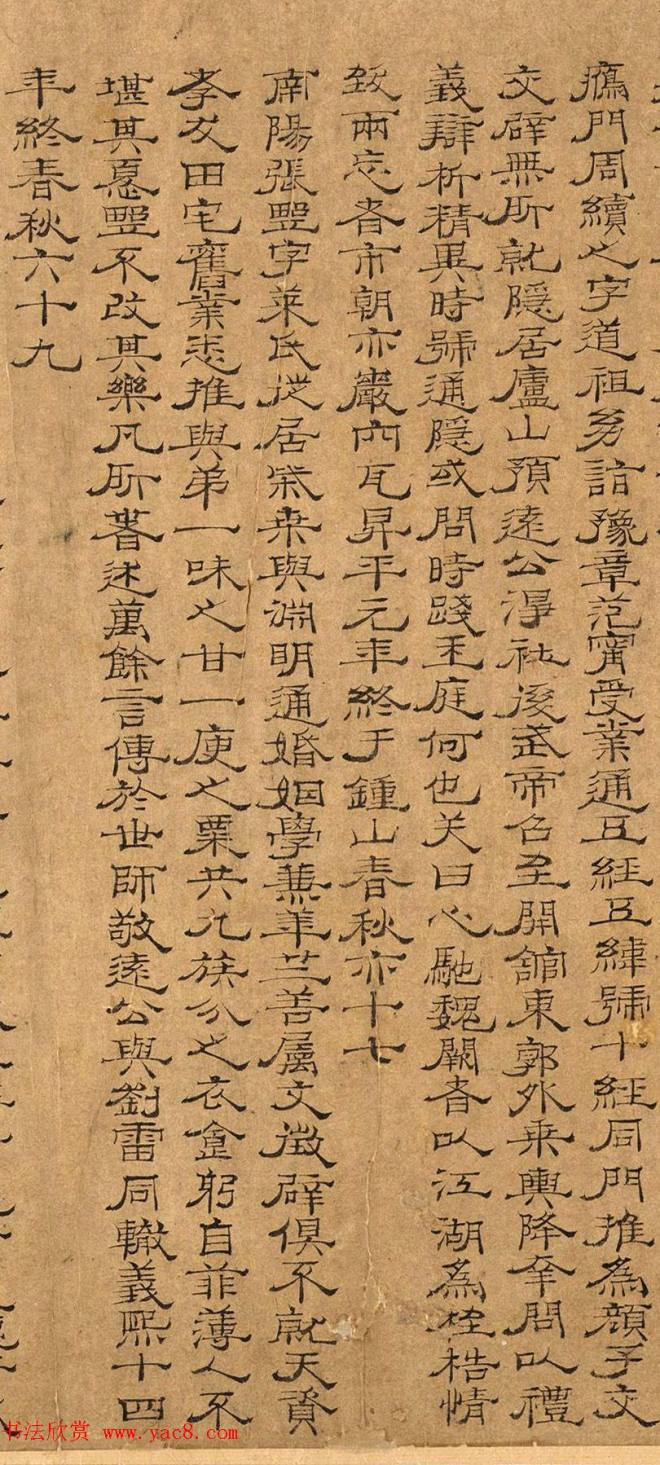 鴈門周續之字道祖幼詣豫章范甯受業通五經五緯號十經同門推為顏子交
交辟無所就隱居廬山預遠公淨社後武帝召至開館東郭外乘輿降幸問以禮
義辯析精異時號通隱或問時踐王庭何也答曰心馳魏闕者以江湖為桎梏情
致兩忘者市朝亦巖穴耳昇平元年終于鍾山春秋六十七
南陽張野字萊民徙居柴桑與淵明通婚姻學兼華竺善属文徵辟俱不就天資
孝友田宅舊業悉推與弟一味之甘一庾之粟共九族分之衣食躬自菲薄人不
堪其憂野不改其樂凡所著述萬餘言傳於世師敬遠公與劉雷同轍義熙十四
年終春秋六十九
书法欣赏 www.yac8.com